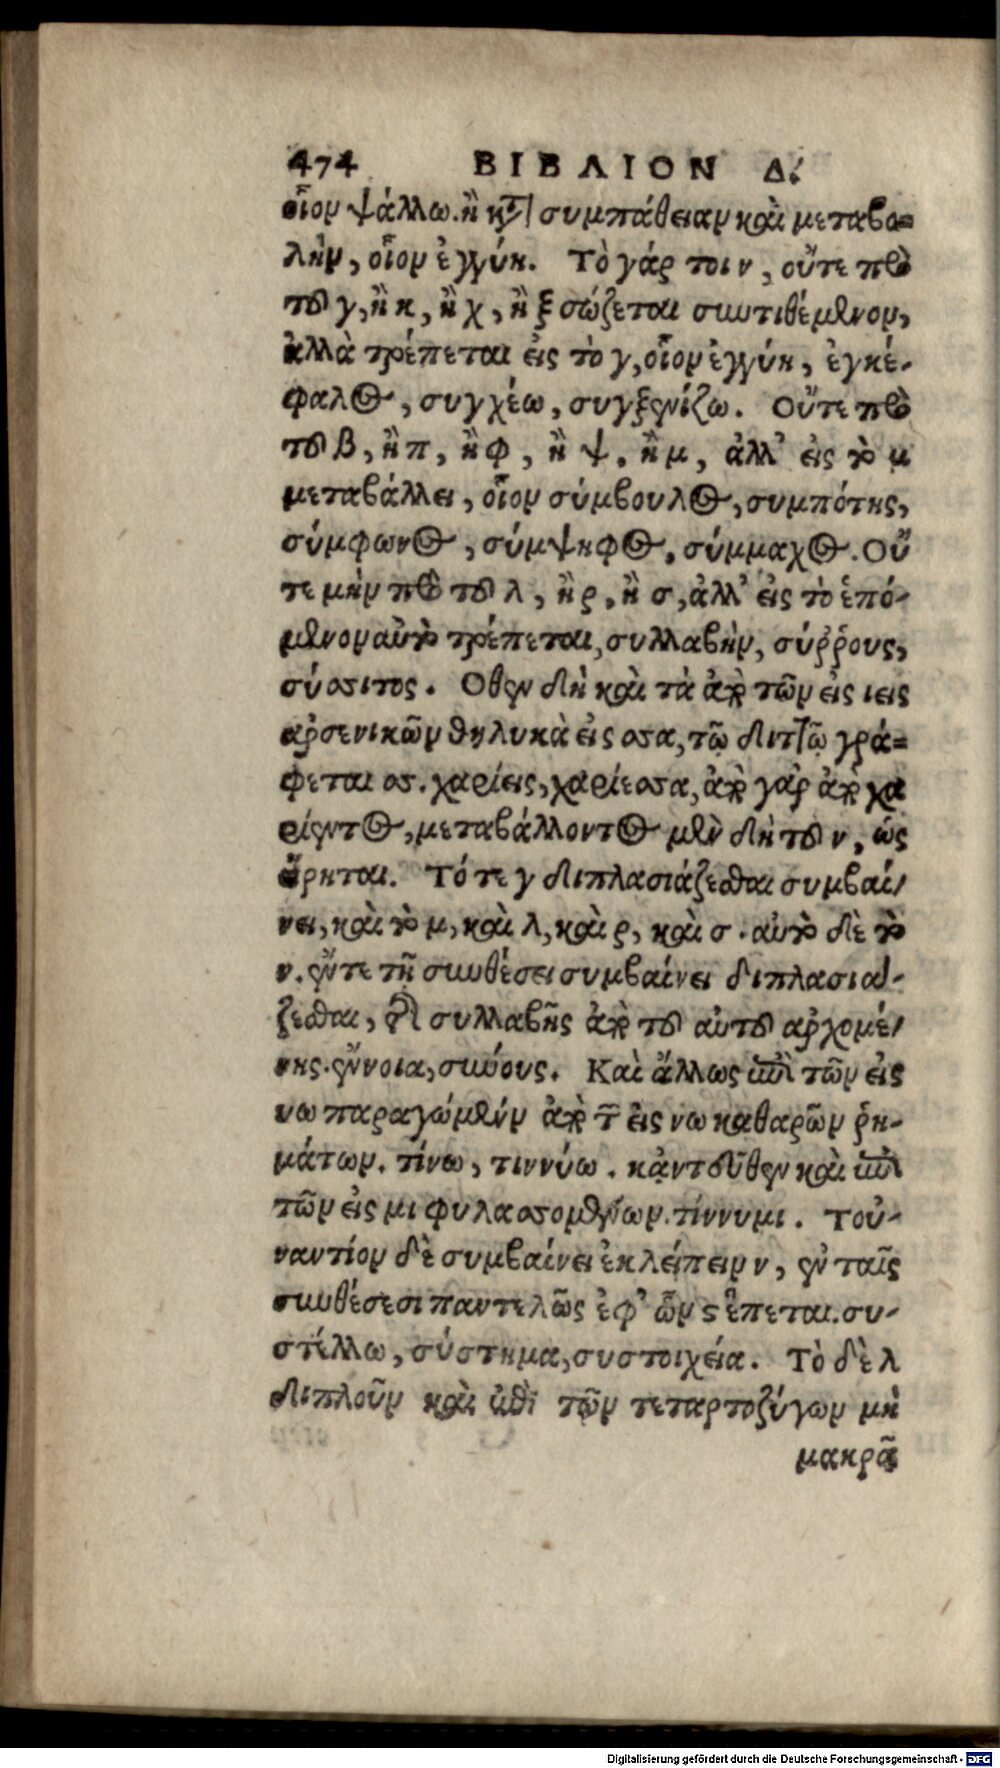 474 ΒΙΒΛΙΟΝ Δ.
οἷον ψάλλω. ἢ κτ͂ συμπάθειαν καὶ μεταβο-
λὴν, οἷον ἐγγύη. Τὸ γάρ τοι ν, οὔτε πρὸ
τοῦ γ, ἢ κ, ἢ χ, ἢ ξ σώζεται συντιθέμενον,
ἀλλὰ τρέπεται εἰς τὸ γ, οἷον ἐγγύη, ἐγκέ-
φαλος, συγχέω, συγξενίζω. Οὔτε πρὸ
τοῦ β, ἢ π, ἢ φ, ἢ ψ, ἢ μ, ἀλλ' εἰς τὸ μ
μεταβάλλει, οἷον σύμβουλος, συμπότης,
σύμφωνος, σύμψηφος, σύμμαχος. Οὔ
τε μὴν πρὸ τοῦ λ, ἢ ρ, ἢ σ, ἀλλ' εἰς τὸ ἑπό-
μενον αὐτὸ τρέπεται, συλλαβὴν, σύῤῥους,
σύσσιτος. Οθεν δὴ καὶ τὰ ἀπὸ τῶν εἰς ιεις
αρσενικῶν θηλυκὰ εἰς σσα, τῷ διττῷ γρά-
φεται σσ. χαρίεις, χαρίεσσα, ἀπὸ γὰρ ἀπὸ χα
ρίεντος, μεταβάλλοντος μὲν δὴ τοῦ ν, ὡς
εἴρηται. Τό τε γ διπλασιάζεσθαι συμβαί-
νει, καὶ τὸ μ, καὶ λ, καὶ ρ, καὶ σ. αὐτὸ δὲ τὸ
ν. ἔντε τῇ συνθέσει συμβαίνει διπλασιά-
ζεσθαι, συλλαβῆς ἀπὸ τοῦ αὐτοῦ αρχομέ-
νης. ἔννοια, σύνους. Καὶ ἄλλως ἐπὶ τῶν εἰς
νω παραγώμενων ἀπὸ τ͂ εἰς νω καθαρῶν ῥη-
μάτων. τίνω, τιννύω. κᾀντοῦθεν καὶ ἐπὶ
τῶν εἰς μι φυλασσομένων. τίννυμι. Τοὐ-
ναντίον δὲ συμβαίνει ἐκλείπειν ν, ἐν ταῖς
συνθέσεσι παντελῶς ἐφ' ὧν ς ἕπεται. συ-
στέλλω, σύστημα, συστοιχεία. Τὸ δὲ λ
διπλοῦν καὶ ἐπὶ τῶν τεταρτοζύγων μὴ
μακρᾷ
Digitalisierung gefördert durch die Deutsche Forschungsgemeinschaft - DFG